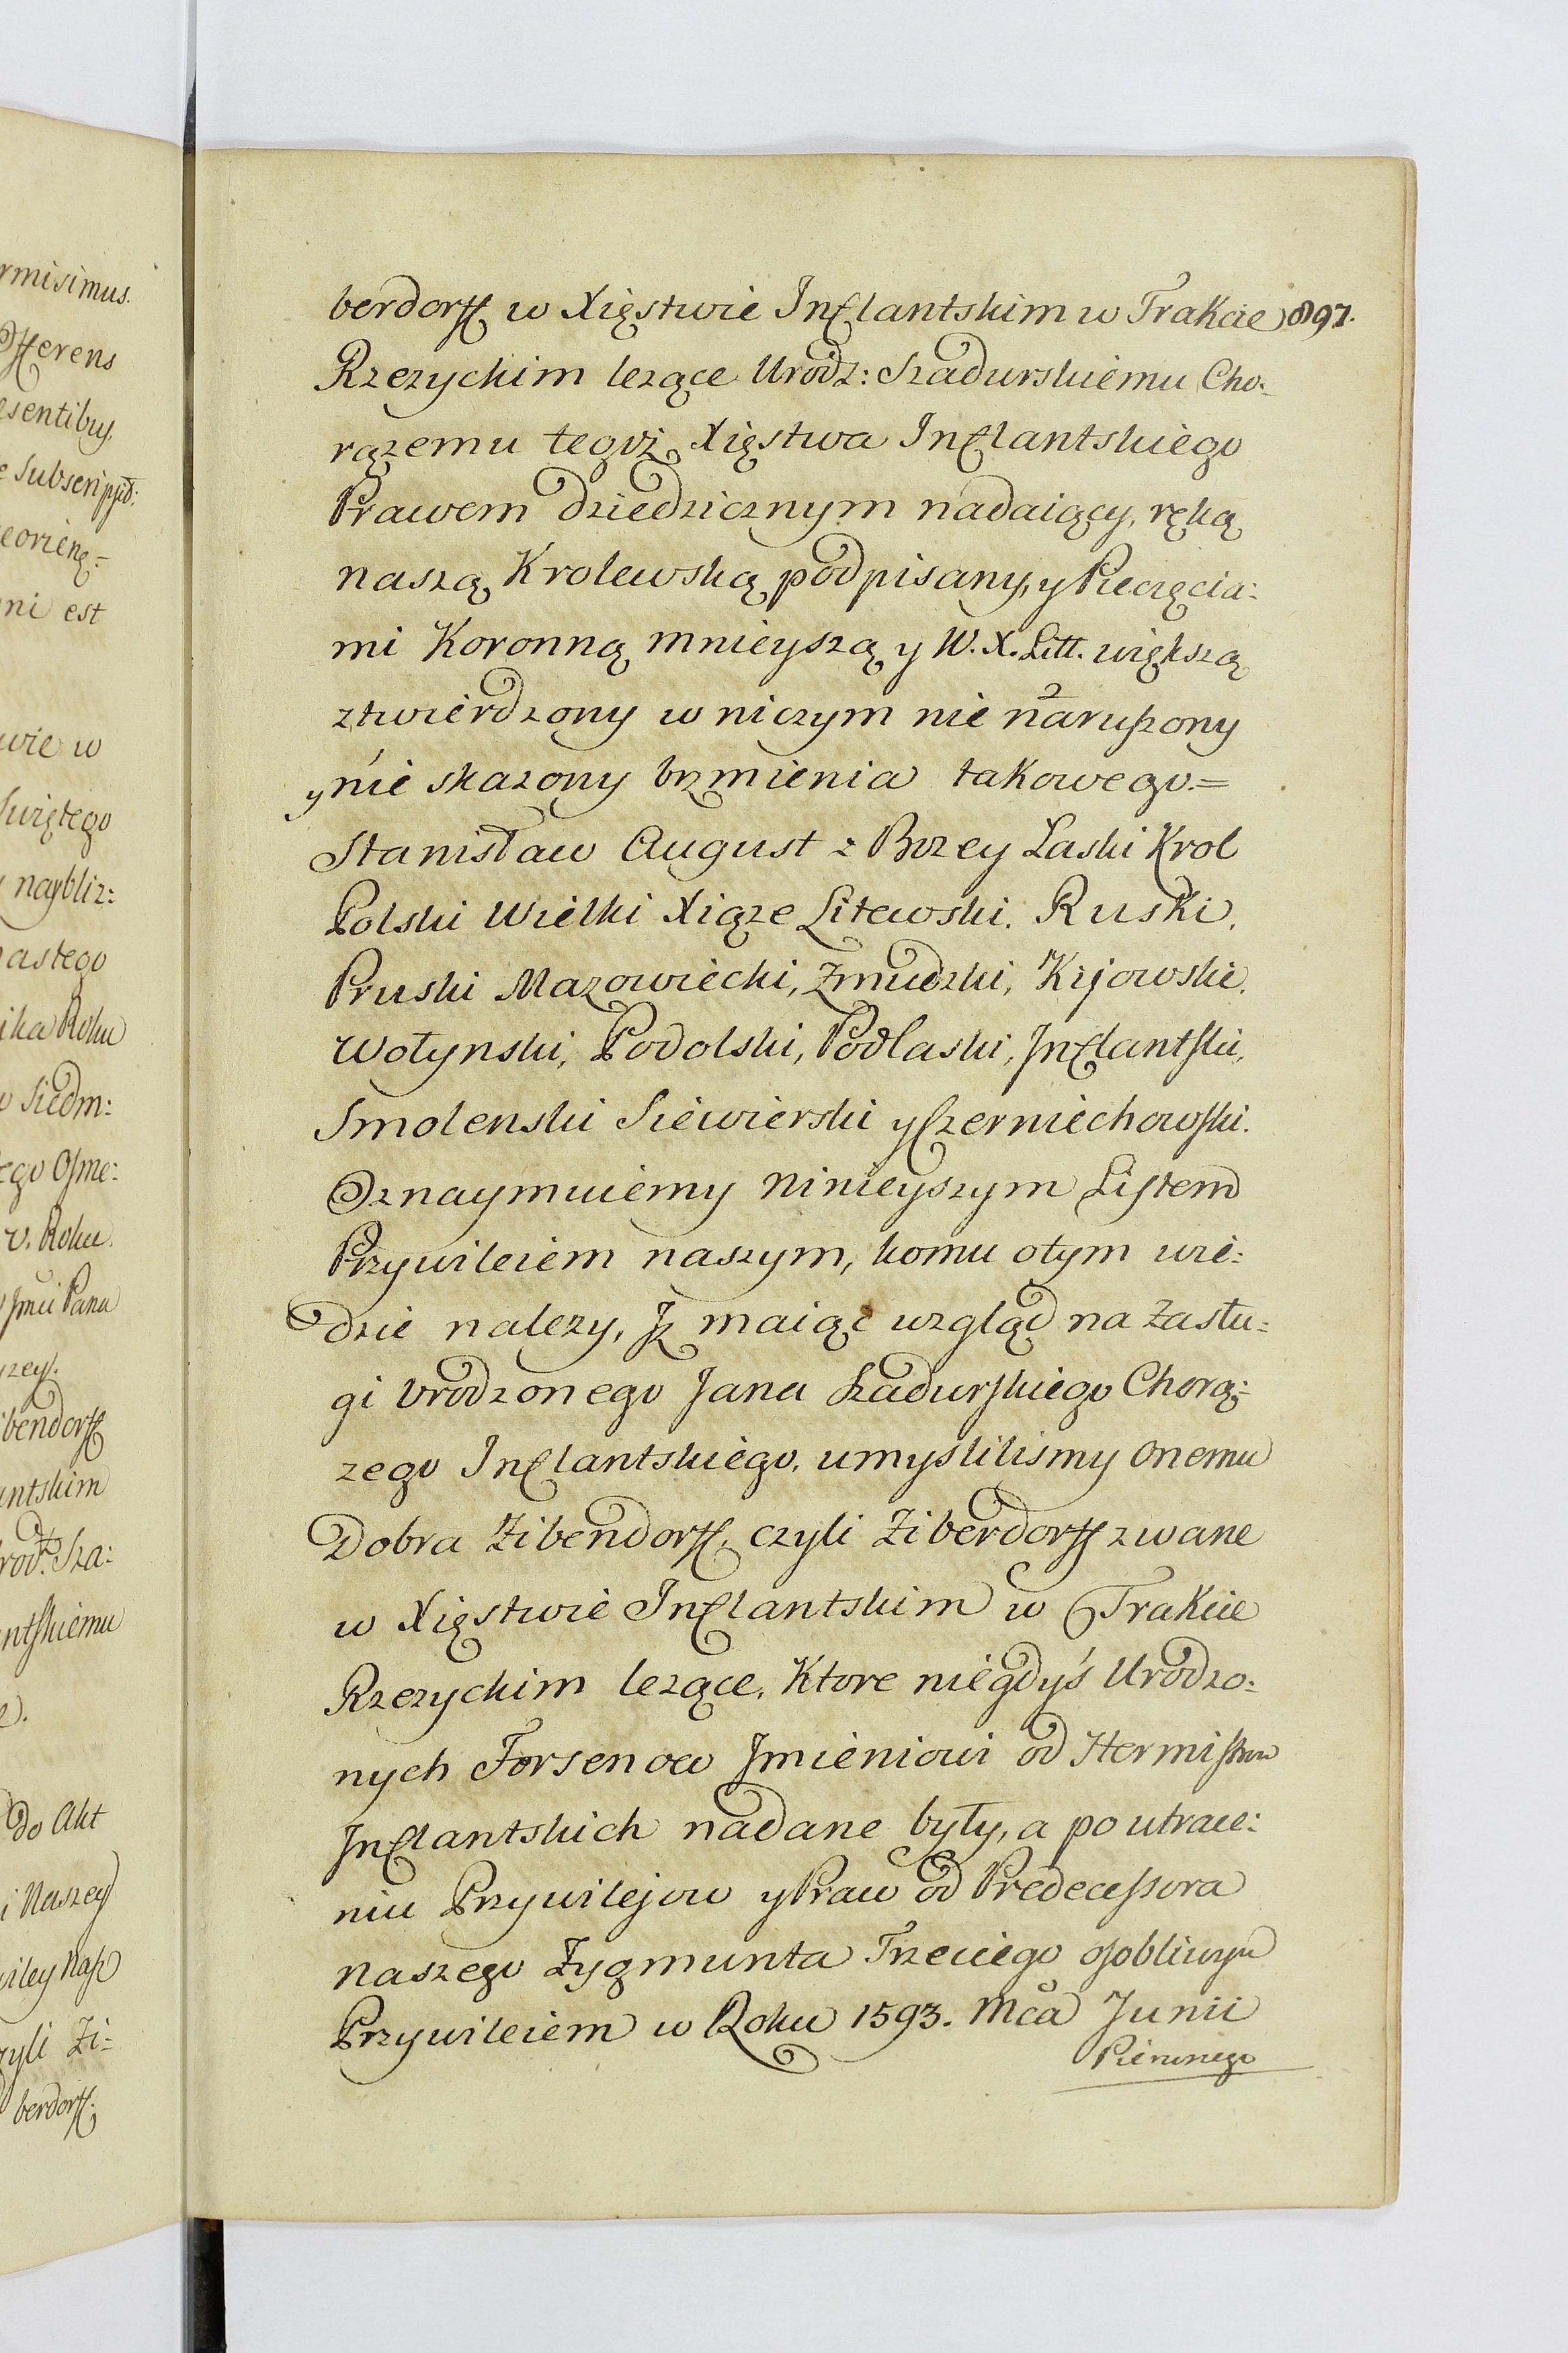 rmisimus.
fferens
esentibus
e Subscripśd:
eorieng=
ni est
wie w
Swiętego
naybliz:
nastego
ika Roku
o Siedm:
ego Osme:
v. Roku
Jmci Pana
yzey.
ibendorff
antskim
rodz: Sza:
antskiemu
do Akt
i Naszey
wiley Nasz
zyli Zi=
berdorff
897.
berdorff w Xięstwie Inflantskim w Trakcie
Rzezyckim lezące Urodz: Szadurskiemu Cho:
rązemu tegoż Xięstwa Inflantskiego
Prawem dziedzicznym nadaiący, ręką
naszą Krolewską podpisany, y Pieczęcia:
mi Koronną mnieyszą y W. X. Litt. większą
ztwierdzony w niczym nie naruszony
y nie skazony brzmienia takowego.=
Stanisław August z Bozey Łaski Krol
Polski Wielki Xiąze Litewski. Ruski.
Pruski Mazowiecki, Zmudzki, Kijowski.
Wołynski, Podolski, Podlaski, Inflantski,
Smolenski Siewierski y Czerniechowski.
Oznaymuiemy Ninieyszym Listem
Przywileiem naszym, komu o tym wie:
dzie nalezy, Jz maiąc wzgląd na Zasłu:
gi Urodzonego Jana Szadurskiego Chorą:
zego Inflantskiego, umyslilismy onemu
Dobra Zibendorff, czyli Ziberdorff zwane
w Xięstwie Inflantskim w Trakcie
Rzezyckim lezące, Ktore niegdyś Urodzo:
nych Forsenow Jmieniowi od Hermistrzow
Inflantskich nadane były, a po utrace:
niu Przywilejow y Praw od Predecessora
naszego Zygmunta Trzeciego osobliwym
Przywileiem w Roku 1593. Mca Junii
Pierwszego